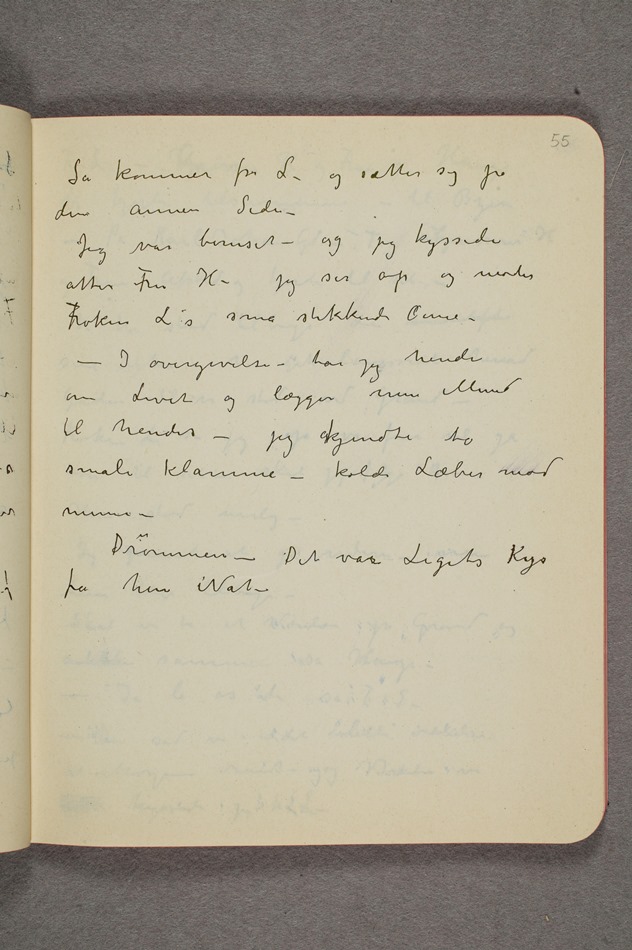 55
Så kommer frk L. og sætter sig på
den annen Side –
Jeg var beruset – og jeg kyssede
atter Fru H – jeg ser op og møder
Frøken L's små stikkende Øine –
– I overgivelse – tar jeg hende
om Livet og lægger min Mund
til hendes – jeg kjendte to
smale klamme – kolde Læber mod
mine –
Drömmen – Det var Ligets Kys
fra hin Nat –